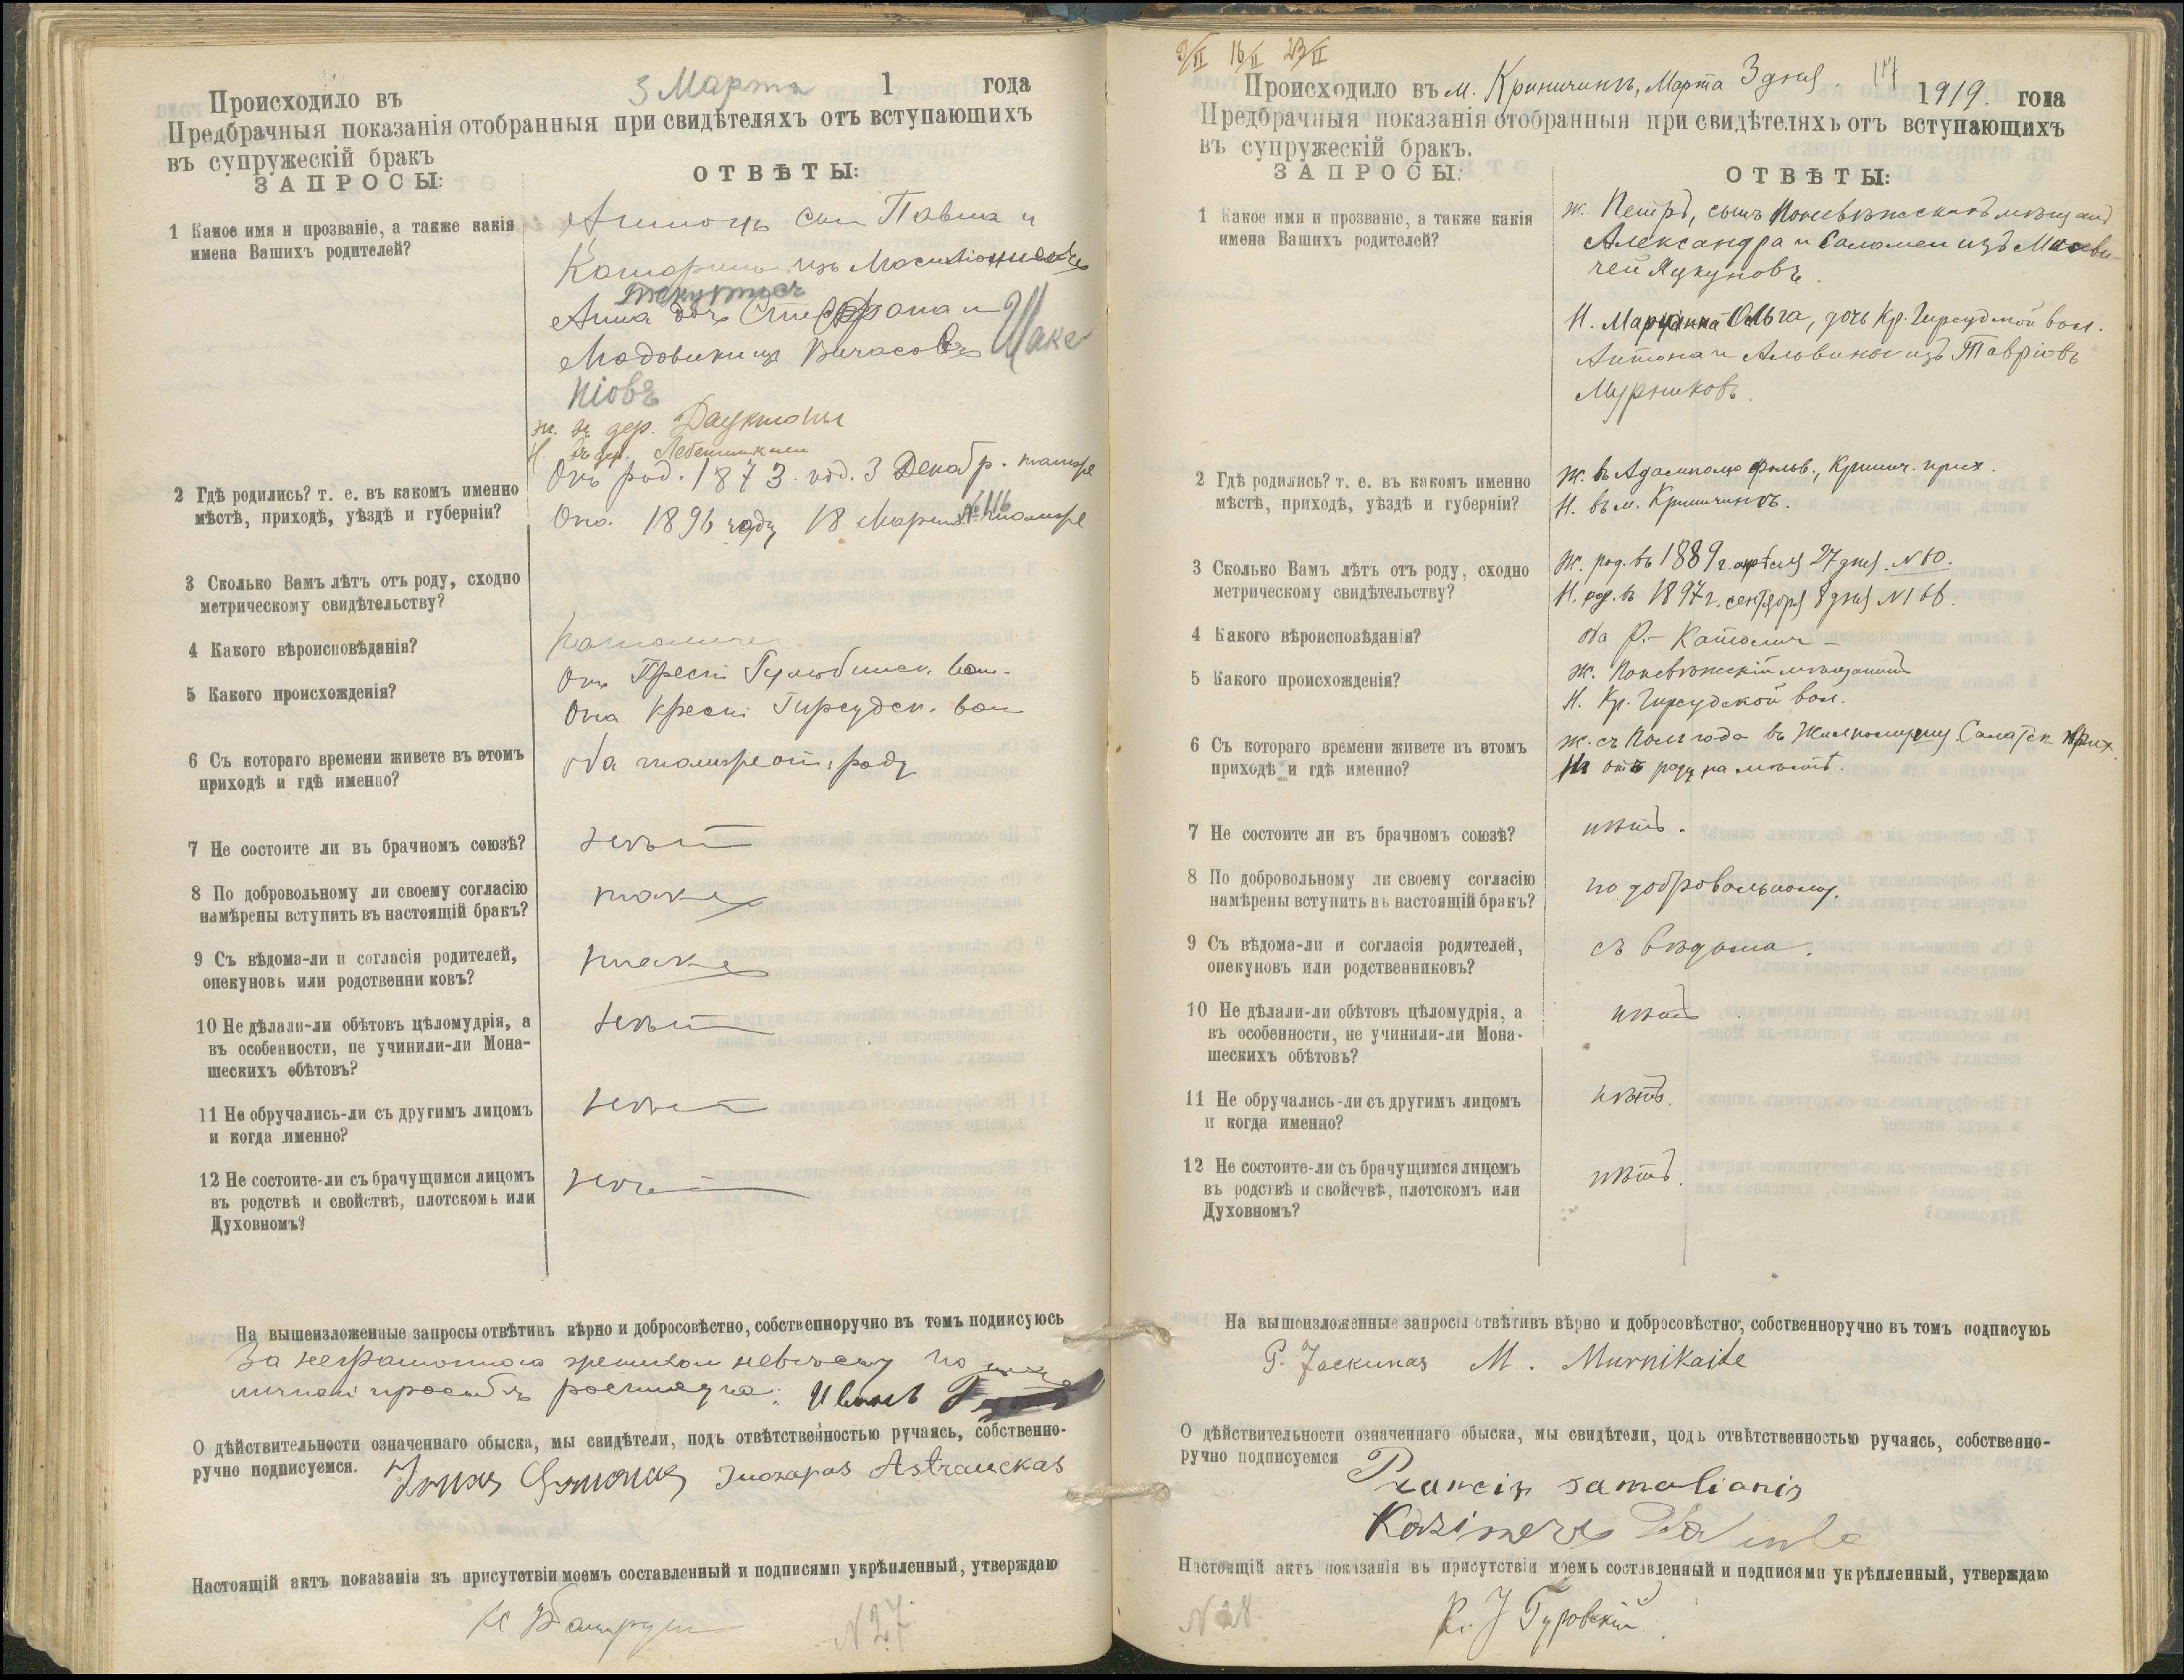 3 Марта 1 года
Происходило въ
Предбрачныя показанія отобранныя при свидѣтеляхъ отъ вступающихъ
въ супружескій бракъ
ЗАПРОСЫ: ОТВѢТЫ:
1 Какое имя и прозваніе, а также какія
имена Вашихъ родителей?
сын Павла и
изъ
Анна доч Стефана и
изъ Шаке
піовъ
ж. въ дер.
Н. въ дер.
2 Гдѣ родились? т. е. въ какомъ именно
мѣстѣ, приходѣ, уѣздѣ и губерніи?
Онъ род. 1873. год. 3 Декабр.
Она. 1896 году 18 Марта №116
3 Сколько Вамъ лѣтъ отъ роду, сходно
метрическому свидѣтельству?
4 Какого вѣроисповѣданія?
5 Какого происхожденія?
Она Крест. Гирсудск. вол
6 Съ котораго времени живете въ этомъ
приходѣ и гдѣ именно?
оба роду
7 Не состоите ли въ брачномъ союзѣ?
нѣт
8 По добровольному ли своему согласію
намѣрены вступить въ настоящій бракъ?
такъ
9 Съ вѣдома-ли и согласія родителей,
опекуновъ или родственни ковъ?
такъ
10 Не дѣлали-ли обѣтовъ цѣломудрія, а
въ особенности, не учинили-ли Мона-
шескихъ обѣтовъ?
нѣт
11 Не обручались-ли съ другимъ лицомъ
и когда именно?
нѣт
12 Не состоите-ли съ брачущимся лицомъ
въ родствѣ и свойствѣ, плотскомъ или
Духовномъ?
нѣт
На вышеизложенные запросы отвѣтивъ вѣрно и добросовѣстно, собственноручно въ томъ подписуюсь
За неграмотного невѣсту по
личной просьбѣ
О дѣйствительности означеннаго обыска, мы свидѣтели, подъ отвѣтственностью ручаясь, собственно-
ручно подписуемся.
Astrauckas
Настоящій актъ показанія въ присутствіи моемъ составленный и подписями укрѣпленный, утверждаю
N 27
9/II 16/II 23/II
Происходило въ м. Криничинъ, Марта 3 дня. 1919 года
Предбрачныя показанія отобранныя при свидѣтеляхъ отъ вступающихъ
въ супружескій бракъ.
ЗАПРОСЫ: ОТВѢТЫ:
1 Какое имя и прозваніе, а также какія
имена Вашихъ родителей?
ж. Петръ, сынъ Поневѣжскихъ мѣщанъ
Александра и Саломеи изъ
чей Яцкуновъ.
Н. Марианна Ольга, дочь Кр. Гирсудской вол.
Антона и Альвины изъ Тавріовъ
Мурниковъ.
2 Гдѣ родились? т. е. въ какомъ именно
мѣстѣ, приходѣ, уѣздѣ и губерніи?
ж. въ фольв., Кринич. прих.
Н. въ м. Криничинъ.
3 Сколько Вамъ лѣтъ отъ роду, сходно
метрическому свидѣтельству?
ж. род. въ 1889 г. апрѣля 27 дня. N 80.
Н. род. въ 1897 г. сентября 8 дня N 166.
4 Какого вѣроисповѣданія?
оба Р.-Католич-
5 Какого происхожденія?
ж. Поневѣжскій мѣщанинъ
Н. Кр. Гирсудской вол.
6 Съ котораго времени живете въ этомъ
приходѣ и гдѣ именно?
ж. съ полгода въ прих.
Н. отъ роду на мѣстѣ.
7 Не состоите ли въ брачномъ союзѣ?
нѣтъ.
8 По добровольному ли своему согласію
намѣрены вступить въ настоящій бракъ?
по добровольному.
9 Съ вѣдома-ли и согласія родителей,
опекуновъ или родственниковъ?
съ вѣдома.
10 Не дѣлали-ли обѣтовъ цѣломудрія, а
въ особенности, не учинили-ли Мона-
шескихъ обѣтовъ?
нѣтъ
11 Не обручались-ли съ другимъ лицомъ
и когда именно?
нѣтъ.
12 Не состоите-ли съ брачущимся лицомъ
въ родствѣ и свойствѣ, плотскомъ или
Духовномъ?
нѣтъ.
На вышеизложенные запросы отвѣтивъ вѣрно и добросовѣстно, собственноручно въ томъ подписуюь
P. Jackunas M. Murnikaite
О дѣйствительности означеннаго обыска, мы свидѣтели, подъ отвѣтственностью ручаясь, собственно-
ручно подписуемся
Prancis samalionis
Настоящій актъ показанія въ присутствіи моемъ составленный и подписями укрѣпленный, утверждаю
N 28 Гуровскій